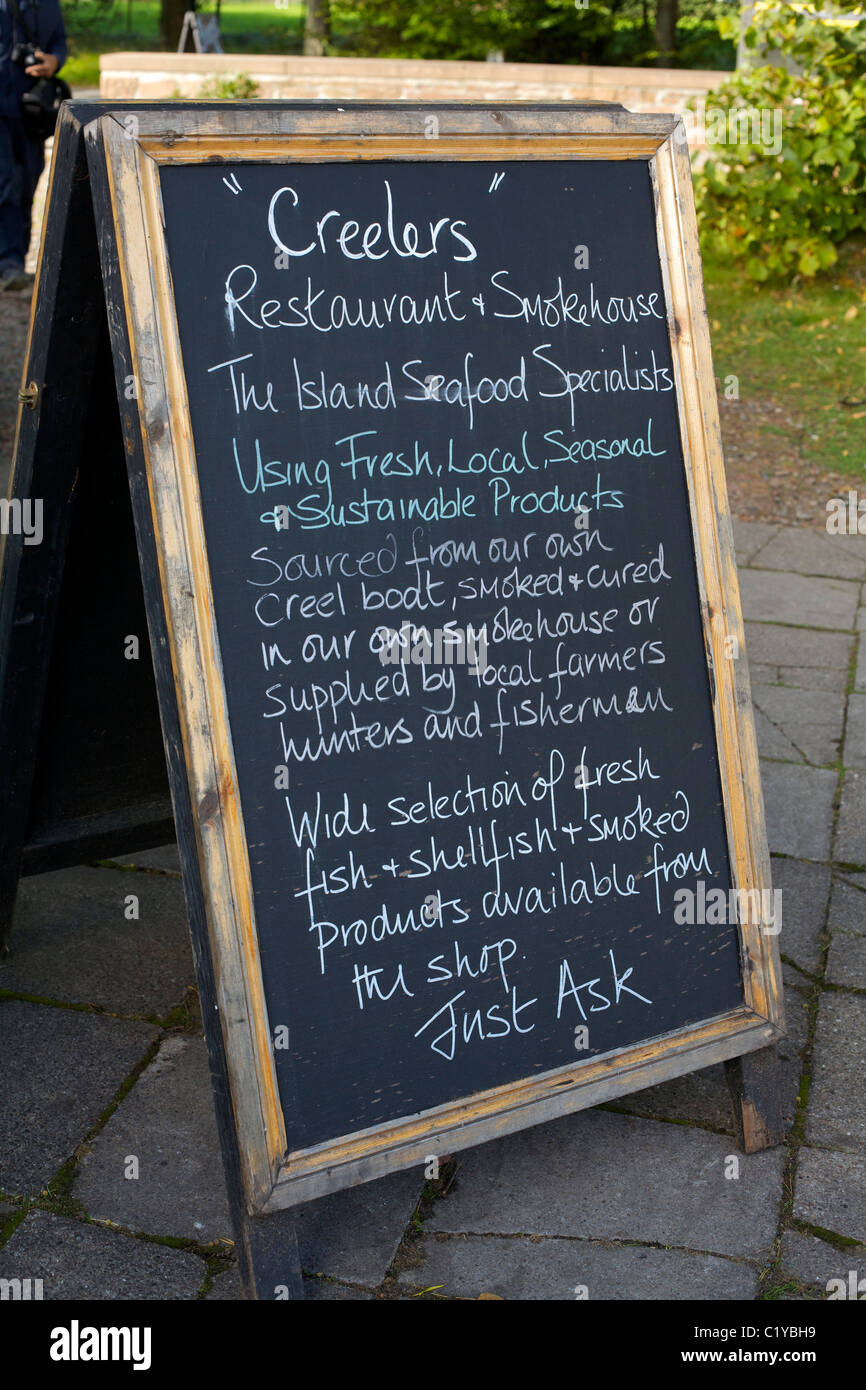 "Creelers"
Restaurant & Smokehouse
The Island Seafood Specialists
Using Fresh, Local, Seasonal
& Sustainable Products
Sourced from our own
Creel boat, smoked & cured
in our own smokehouse or
supplied by local farmers
hunters and fisherman
Wide selection of fresh
fish & shellfish & smoked
Products available from
the shop.
Just Ask
alamy stock photo
C1YBH9
www.alamy.com